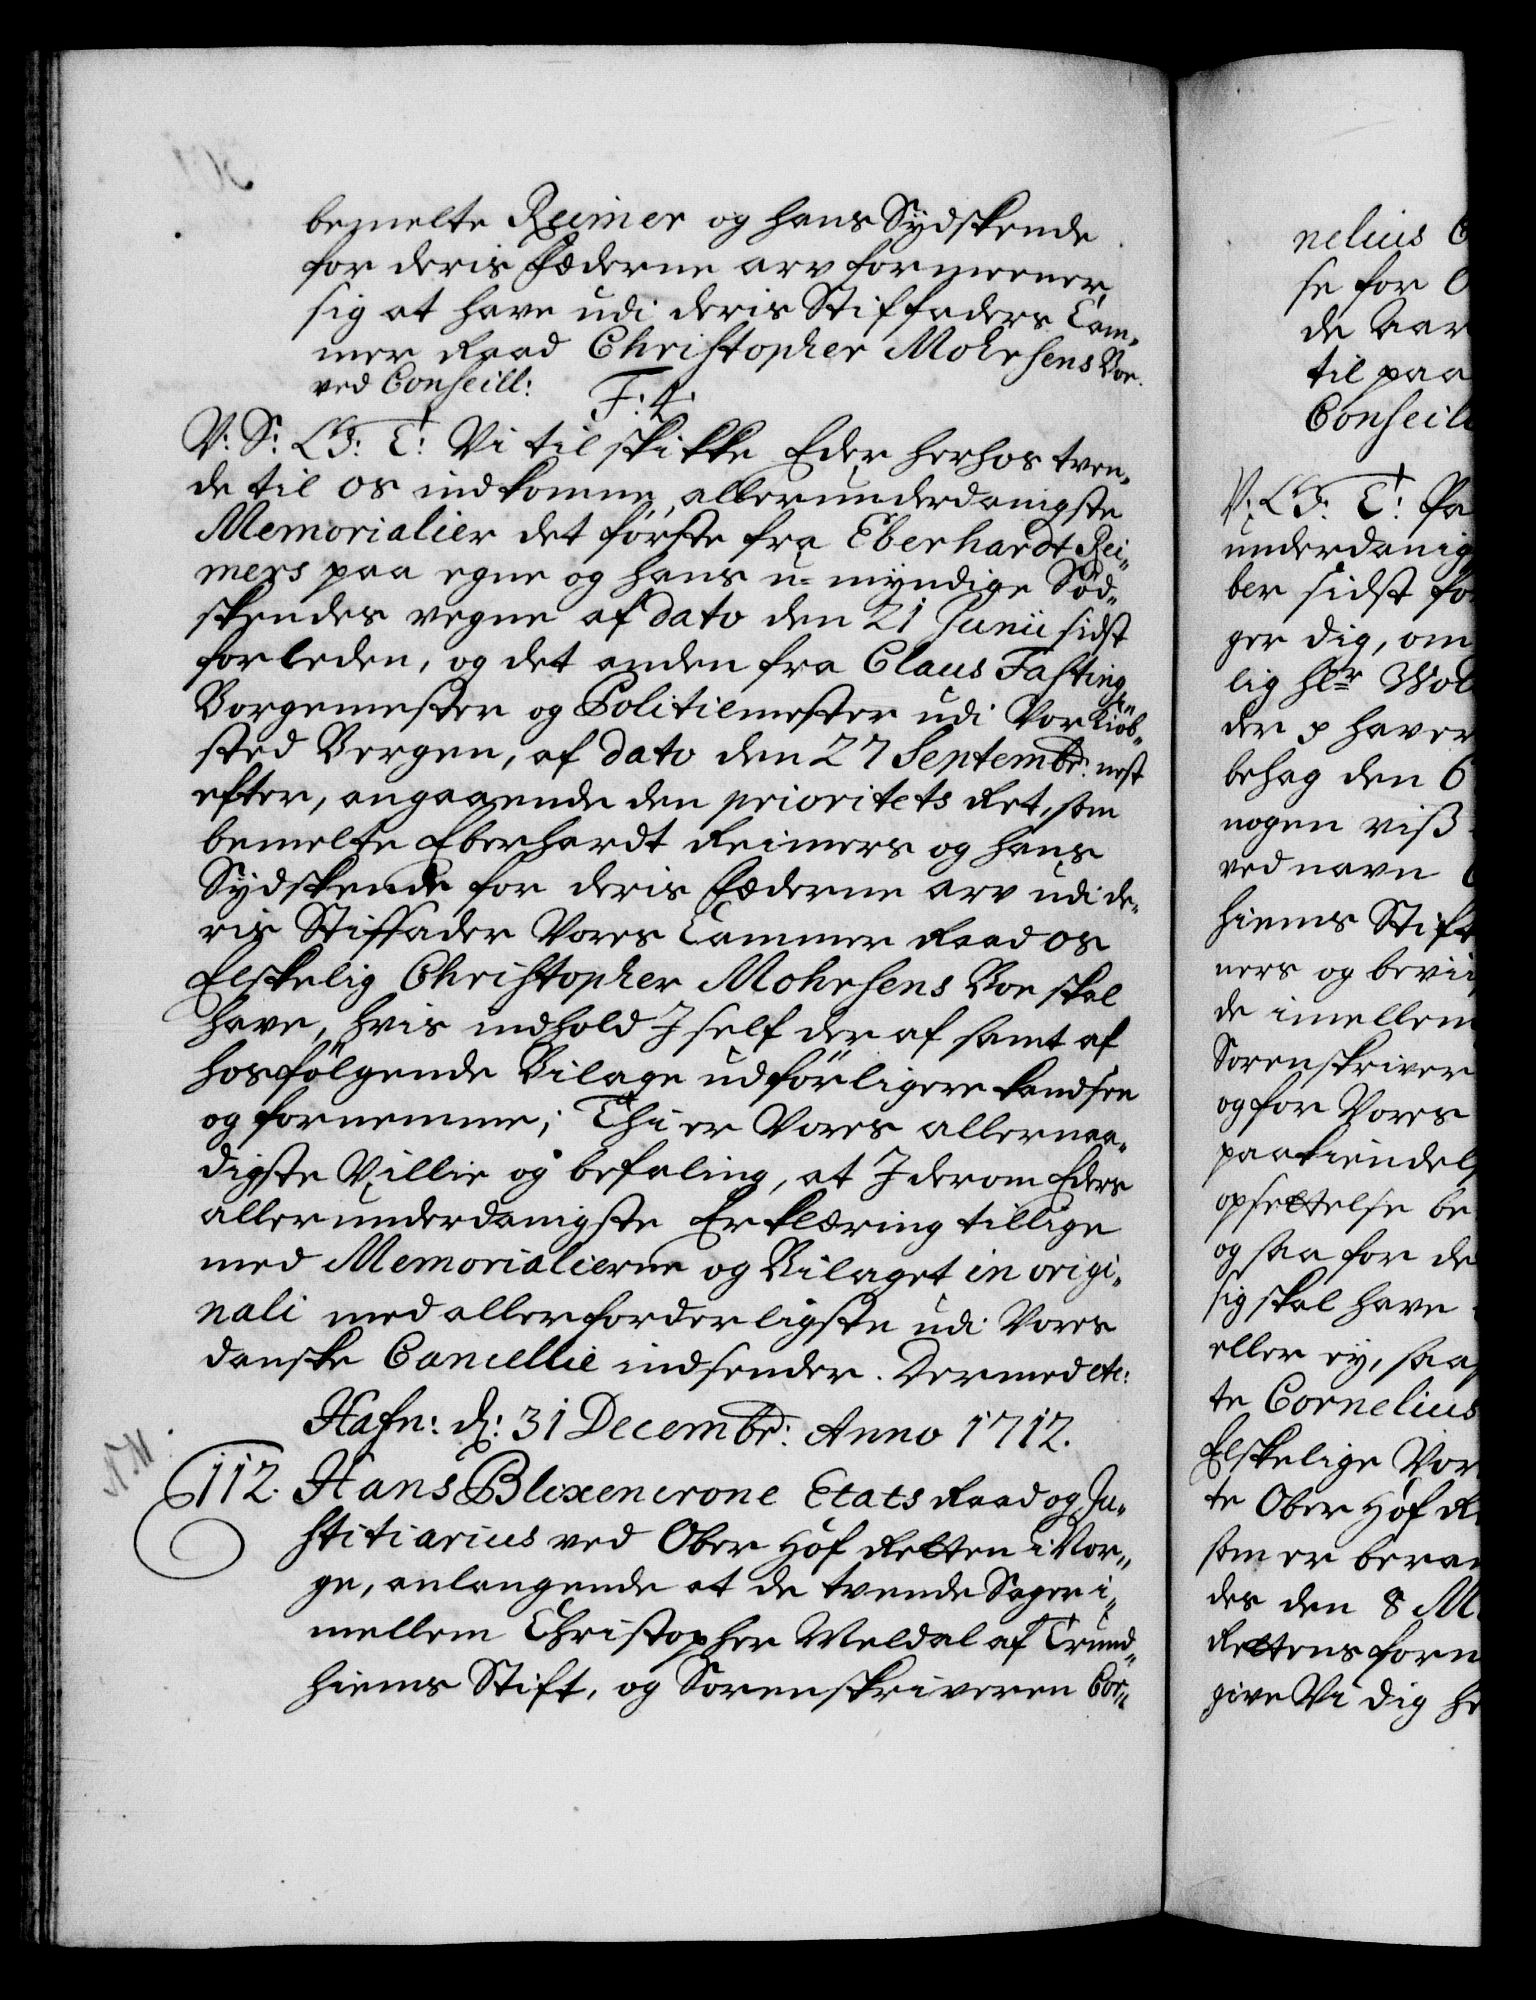 bemelte Reimer og hans Sydskende
for deris Fæderne arv formeener
sig at have udi deris Stiffaders Cam„
mer Raad Christopher Mohrsens Boe.
ved Conseill: F: 4:
V: S: G: T: Vi tilskikke Eder herhos tven„
de til os indkomne allerunderdanigste
Memorialier det første fra Eberhardt Rei„
mers paa egne og hans u-myndige Sød„
skendes vegne af dato den 21 Junii sidst
forleden, og det anden fra Claus Fasting
Borgemester og Politiemester udi Vor Kiöb„
sted Bergen, af dato den 27 Septembr: nest
efter, angaaende den prioritets Ret, som
bemelte Eberhardt Reimers og hans
Sydskende for deris Fæderne arv udi de„
ris Stiffader Vores Cammer Raad os
Elskelig Christopher Mohrsens Boe skal
have, hvis indhold I self der af samt af
hosfølgende Bilage udførligere kand see
og fornemme; Thi er Vores allernaa„
digste Villie og befaling, at I derom Eders
allerunderdanigste Erklæring tillige
med Memorialierne og Bilaget in origi„
nali med allerforderligste udi Vores
danske Cancellie indsender. Dermed etc:
Hafn: d: 31 Decembr: Anno 1712.
112. Hans Blixencrone Etats Raad og Ju„
stitiarius ved Ober Hof Retten i Nor„
ge, anlangende at de tvende Sager i„
mellem Christopher Meldal af Trund„
hiems Stift, og Sorenskriveren Cor„
nelius
se for
de Aar
til paa
Conseill
V: G: T:
underdanig
ber sidst for
ger dig, om
lig Hr
der haver
behag den 6
nogen viss
ved navn
hiems Stift
ners og bevi
de imellem
Sorenskriver
og for Vores
paakiendels
opsettelse be
og saa for de
sig skal have
eller ey, saa
te Cornelius
Elskelige Vor
te Ober Hof R
som er beram
des den 8 M
Rettens form
give Vi dig he